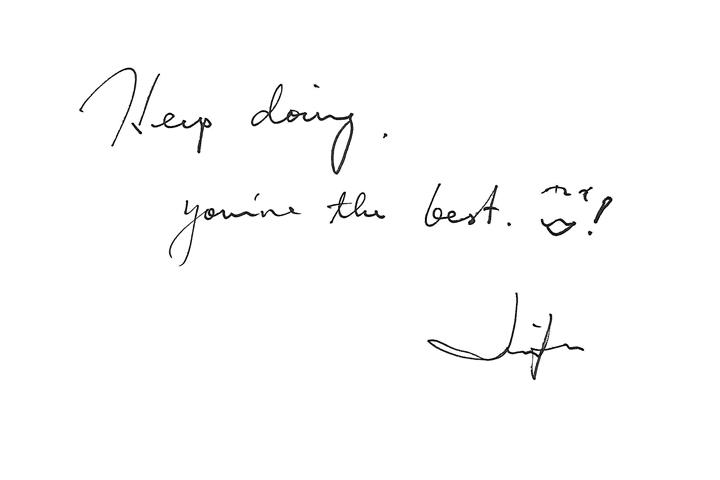 Keep doing.
you're the best. !